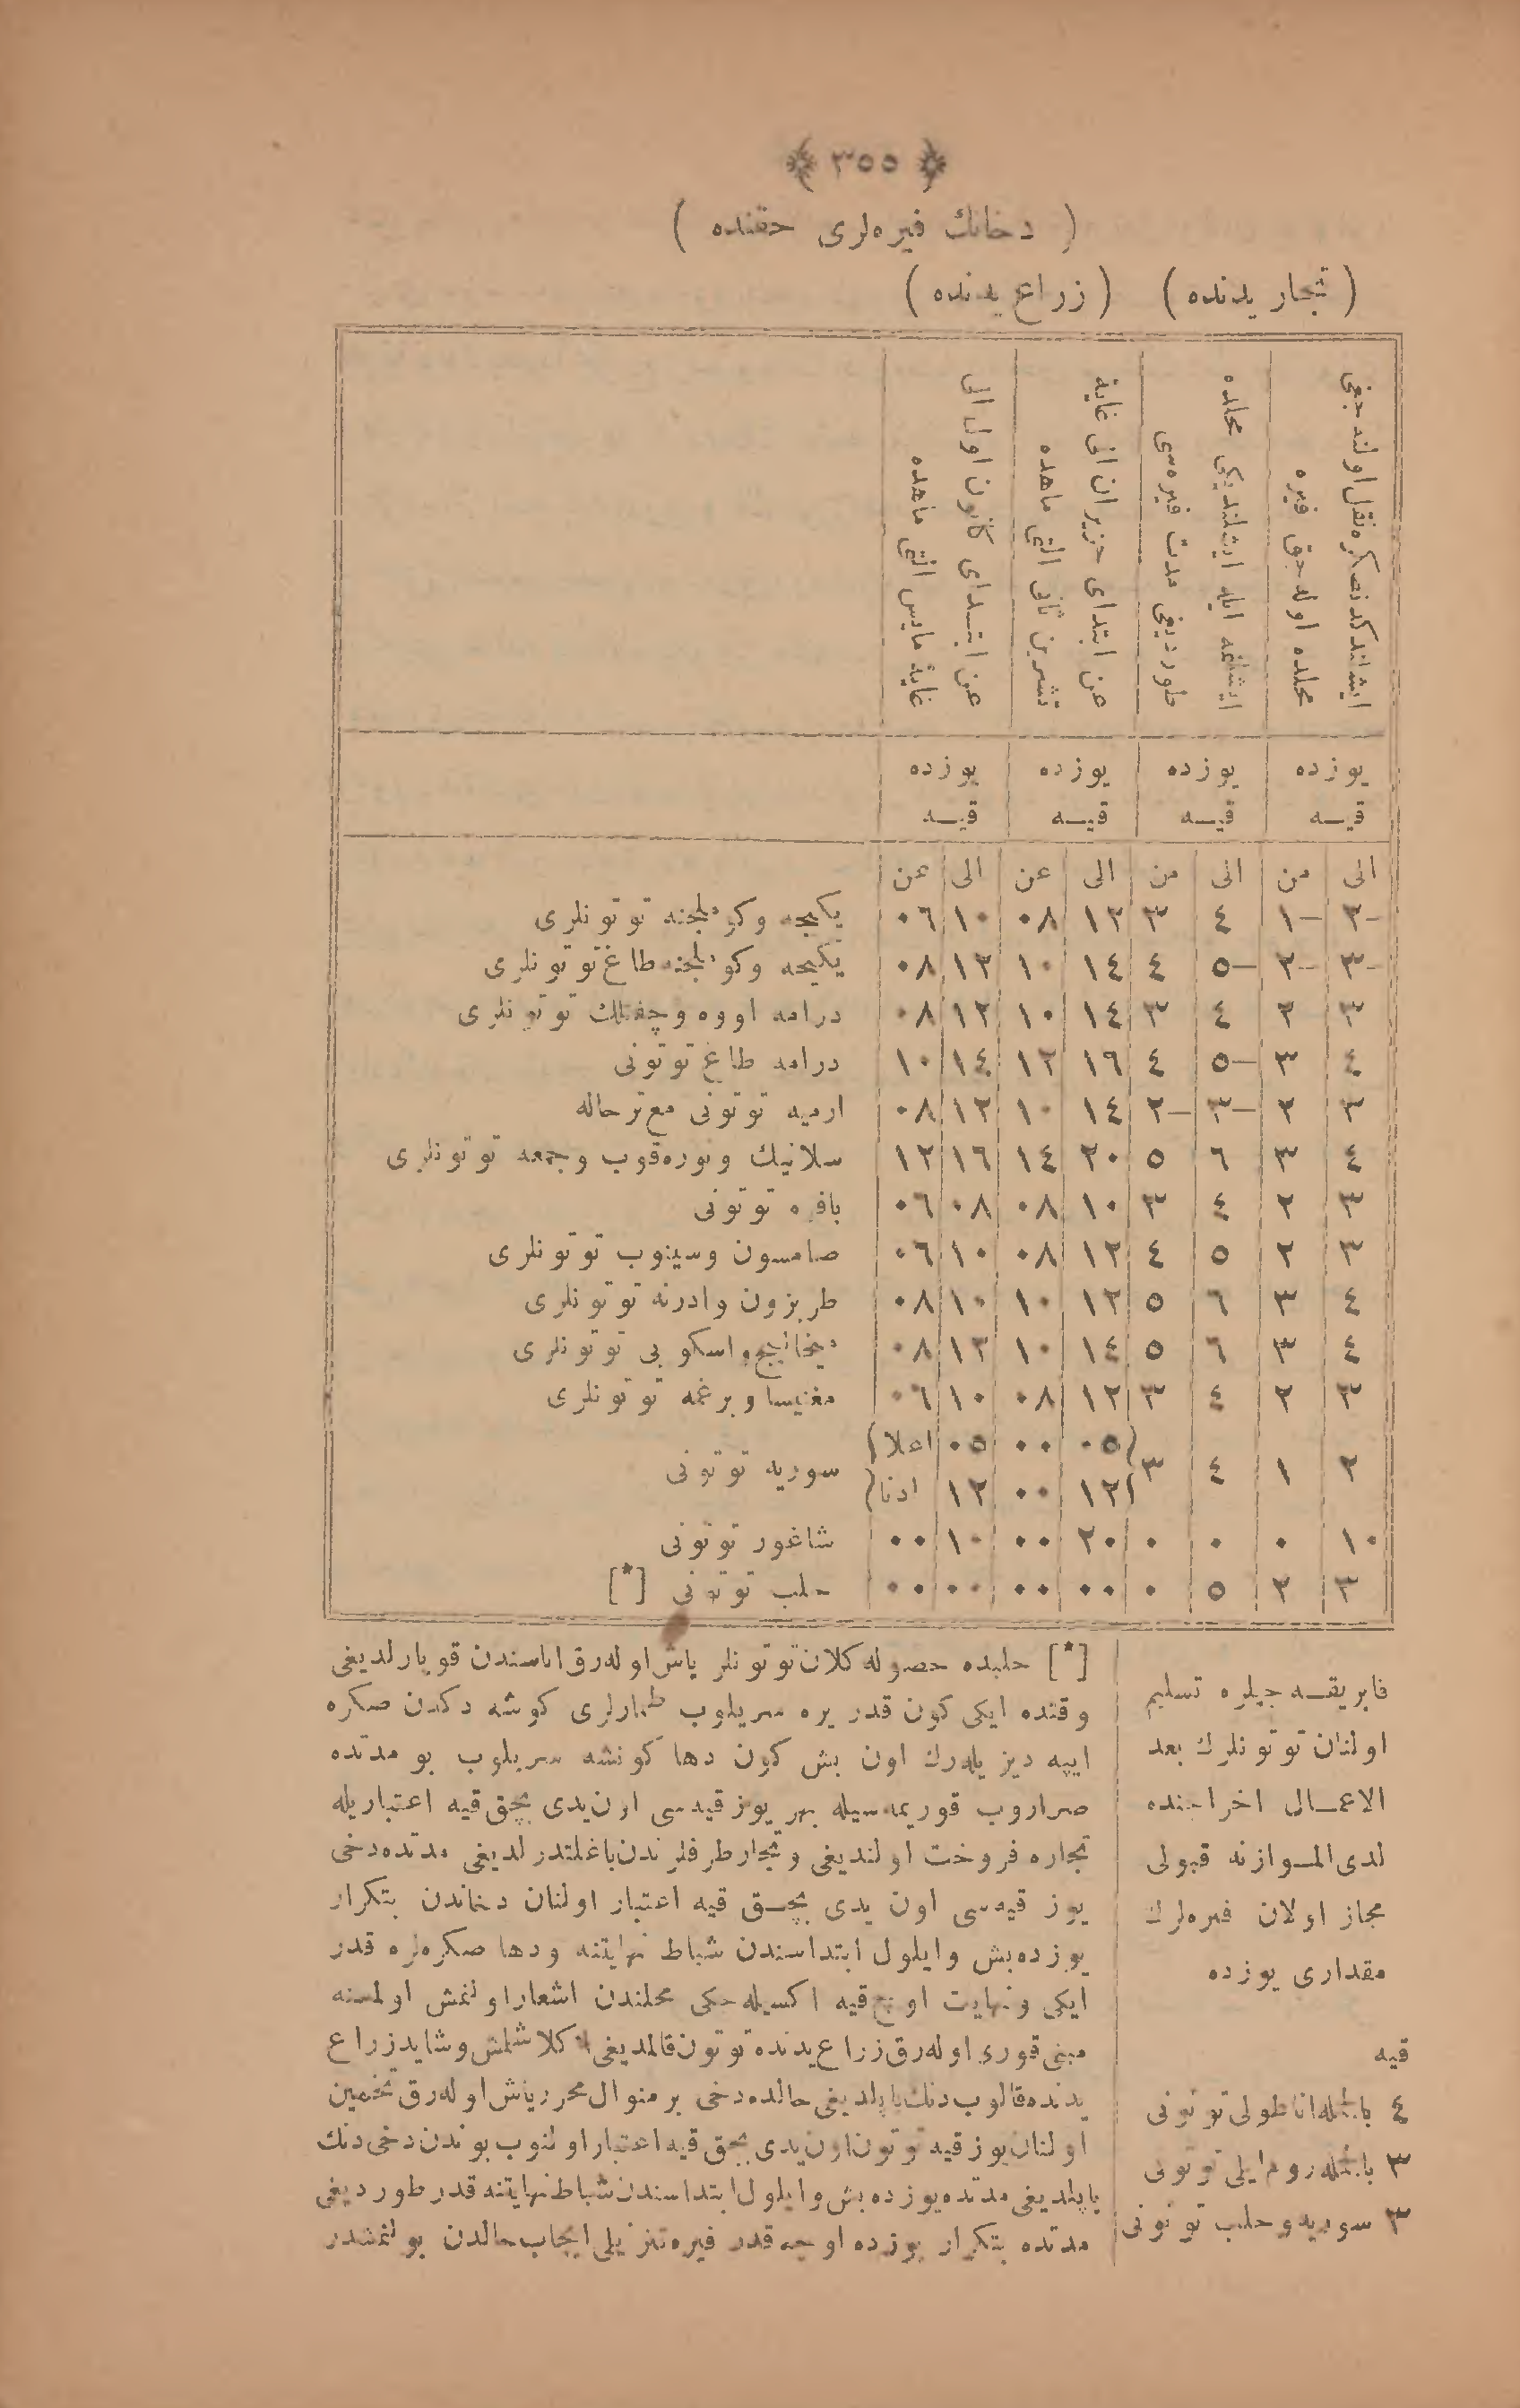 ﴿ ٣٥٥ ﴾
( دخانك فیره‌لری حقنده )
( تجار یدنده ) ( زراع یدنده )
ایشلندكدنصكره نقل اولنه‌جغی
محلده اوله‌جق فیره
ایشلنمه ایله ایشلندیكی محلده
طوردیغی مدت فیره‌سی
عن ابتدای حزیران الی غایهٔ
تشرین ثانی التی ماهده
عن ابتدای كانون اول الی
غایهٔ مایس التی ماهده
یوزده یوزده یوزده یوزده
قیـه قیـه قیـه قیـه
الی من الی من الی عن الی عن
٢– ١– ٤ ٣ ١٢ ٠٨ ١٠ ٠٦ یكیجه وكوملجنه توتونلری
٣– ٢– ٥– ٤ ١٤ ١٠ ١٢ ٠٨ یكیجه وكوملجنه طاغ توتونلری
٣ ٢ ٤ ٣ ١٤ ١٠ ١٢ ٠٨ درامه اووه وچفتلك توتونلری
٤ ٣ ٥– ٤ ١٦ ١٢ ١٤ ١٠ درامه طاغ توتونی
٣ ٢ ٣– ٢– ١٤ ١٠ ١٢ ٠٨ ارمیه توتونی مع ترحاله
٤ ٣ ٦ ٥ ٢٠ ١٤ ١٦ ١٢ سلانیك ونوره‌قوب وجمعه توتونلری
٣ ٢ ٤ ٣ ١٠ ٠٨ ٠٨ ٠٦ بافره توتونی
٣ ٢ ٥ ٤ ١٢ ٠٨ ١٠ ٠٦ صامسون وسینوب توتونلری
٤ ٣ ٦ ٥ ١٢ ١٠ ١٠ ٠٨ طربزون وادرنه توتونلری
٤ ٣ ٦ ٥ ١٤ ١٠ ١٢ ٠٨ میخالیج واسكوبی توتونلری
٣ ٢ ٤ ٣ ١٢ ٠٨ ١٠ ٠٦ مغنیسا وبرغمه توتونلری
٢ ١ ٤ ٣ (٠٥ ٠٠ ٠٥ اعلا) سوریه توتونی
(١٢ ٠٠ ١٢ ادنا)
١٠ ٠ ٠ ٠ ٢٠ ٠٠ ١٠ ٠٠ شاغور توتونی
٣ ٢ ٥ ٠ ٠٠ ٠٠ ٠٠ ٠٠ حلب توتونی [*]
فابریقـه‌جیلره تسلیم
اولنان توتونلرك بعد
الاعمـال اخراجنده
لدی‌المـوازنه قبولی
مجاز اولان فیره‌لرك
مقداری یوزده
قیه
٤ بالجمله اناطولی توتونی
٣ بالجمله روم‌ایلی توتونی
٣ سوریه وحلب توتونی
[*] حلبده حصوله كلان توتونلر یاش اوله‌رق اناسندن قوپارلدیغی
وقتده ایكی كون قدر یره سریلوب طمارلری كوشه‌دكدن صكره
ایپه دیزیله‌رك اون بش كون دها كونشه سریلوب بو مدتده
صراروب قوریمه‌سیله بهر یوز قیه‌سی اون‌یدی بچق قیه اعتباریله
تجاره فروخت اولندیغی وتجار طرفلرندن باغلتدرلدیغی مدتده‌دخی
یوز قیه‌سی اون یدی بچـق قیه اعتبار اولنان دخاندن بتكرار
یوزده‌بش وایلول ابتداسندن شباط نهایتنه ودها صكره‌لره قدر
ایكی ونهایت اوچ قیه اكسیله‌جكی محلندن اشعار اولنمش اولمسنه
مبنی قوری اوله‌رق زراع یدنده توتون قالمدیغی اكلاشلمش وشاید زراع
یدنده قالوب دنك یاپلدیغی حالده‌دخی بر منوال محرر یاش اوله‌رق تخمین
اولنان یوز قیه توتون اون‌یدی بچق قیه اعتبار اولنوب بوندن دخی دنك
یاپلدیغی مدتده یوزده بش وایلول ابتداسندن شباط نهایتنه قدر طوردیغی
مدتده بتكرار یوزده اوچه قدر فیره تنزیلی ایجاب حالدن بولنمشدر